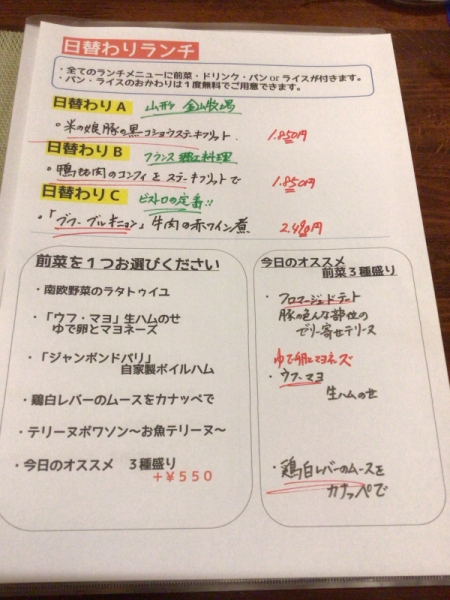 日替わりランチ
・全てのランチメニューに前菜・ドリンク・パン or ライスが付きます。
・パン・ライスのおかわりは1度無料でご用意できます。
日替わりA 山形 金山牧場
・米の娘豚の黒コショウステーキフリット. 1.850円
日替わりB フランス郷土料理
・鴨もも肉のコンフィを ステーキフリットで 1.850円
日替わりC ビストロの定番!!
・「ブフ・ブルギニョン」 牛肉の赤ワイン煮 2.490円
前菜を1つお選びください
・南欧野菜のラタトゥイユ
・「ウフ・マヨ」生ハムのせ
ゆで卵とマヨネーズ
・「ジャンボンドパリ」
自家製ボイルハム
・鶏白レバーのムースをカナッペで
・テリーヌポワソン〜お魚テリーヌ〜
・今日のオススメ 3種盛り
+¥550
今日のオススメ
前菜3種盛り
・フロマージュドテット
豚の色んな部位の
ゼリー寄せテリーヌ
ゆで卵とマヨネーズ
・ウフ・マヨ
生ハムのせ
・鶏白レバーのムースを
カナッペで